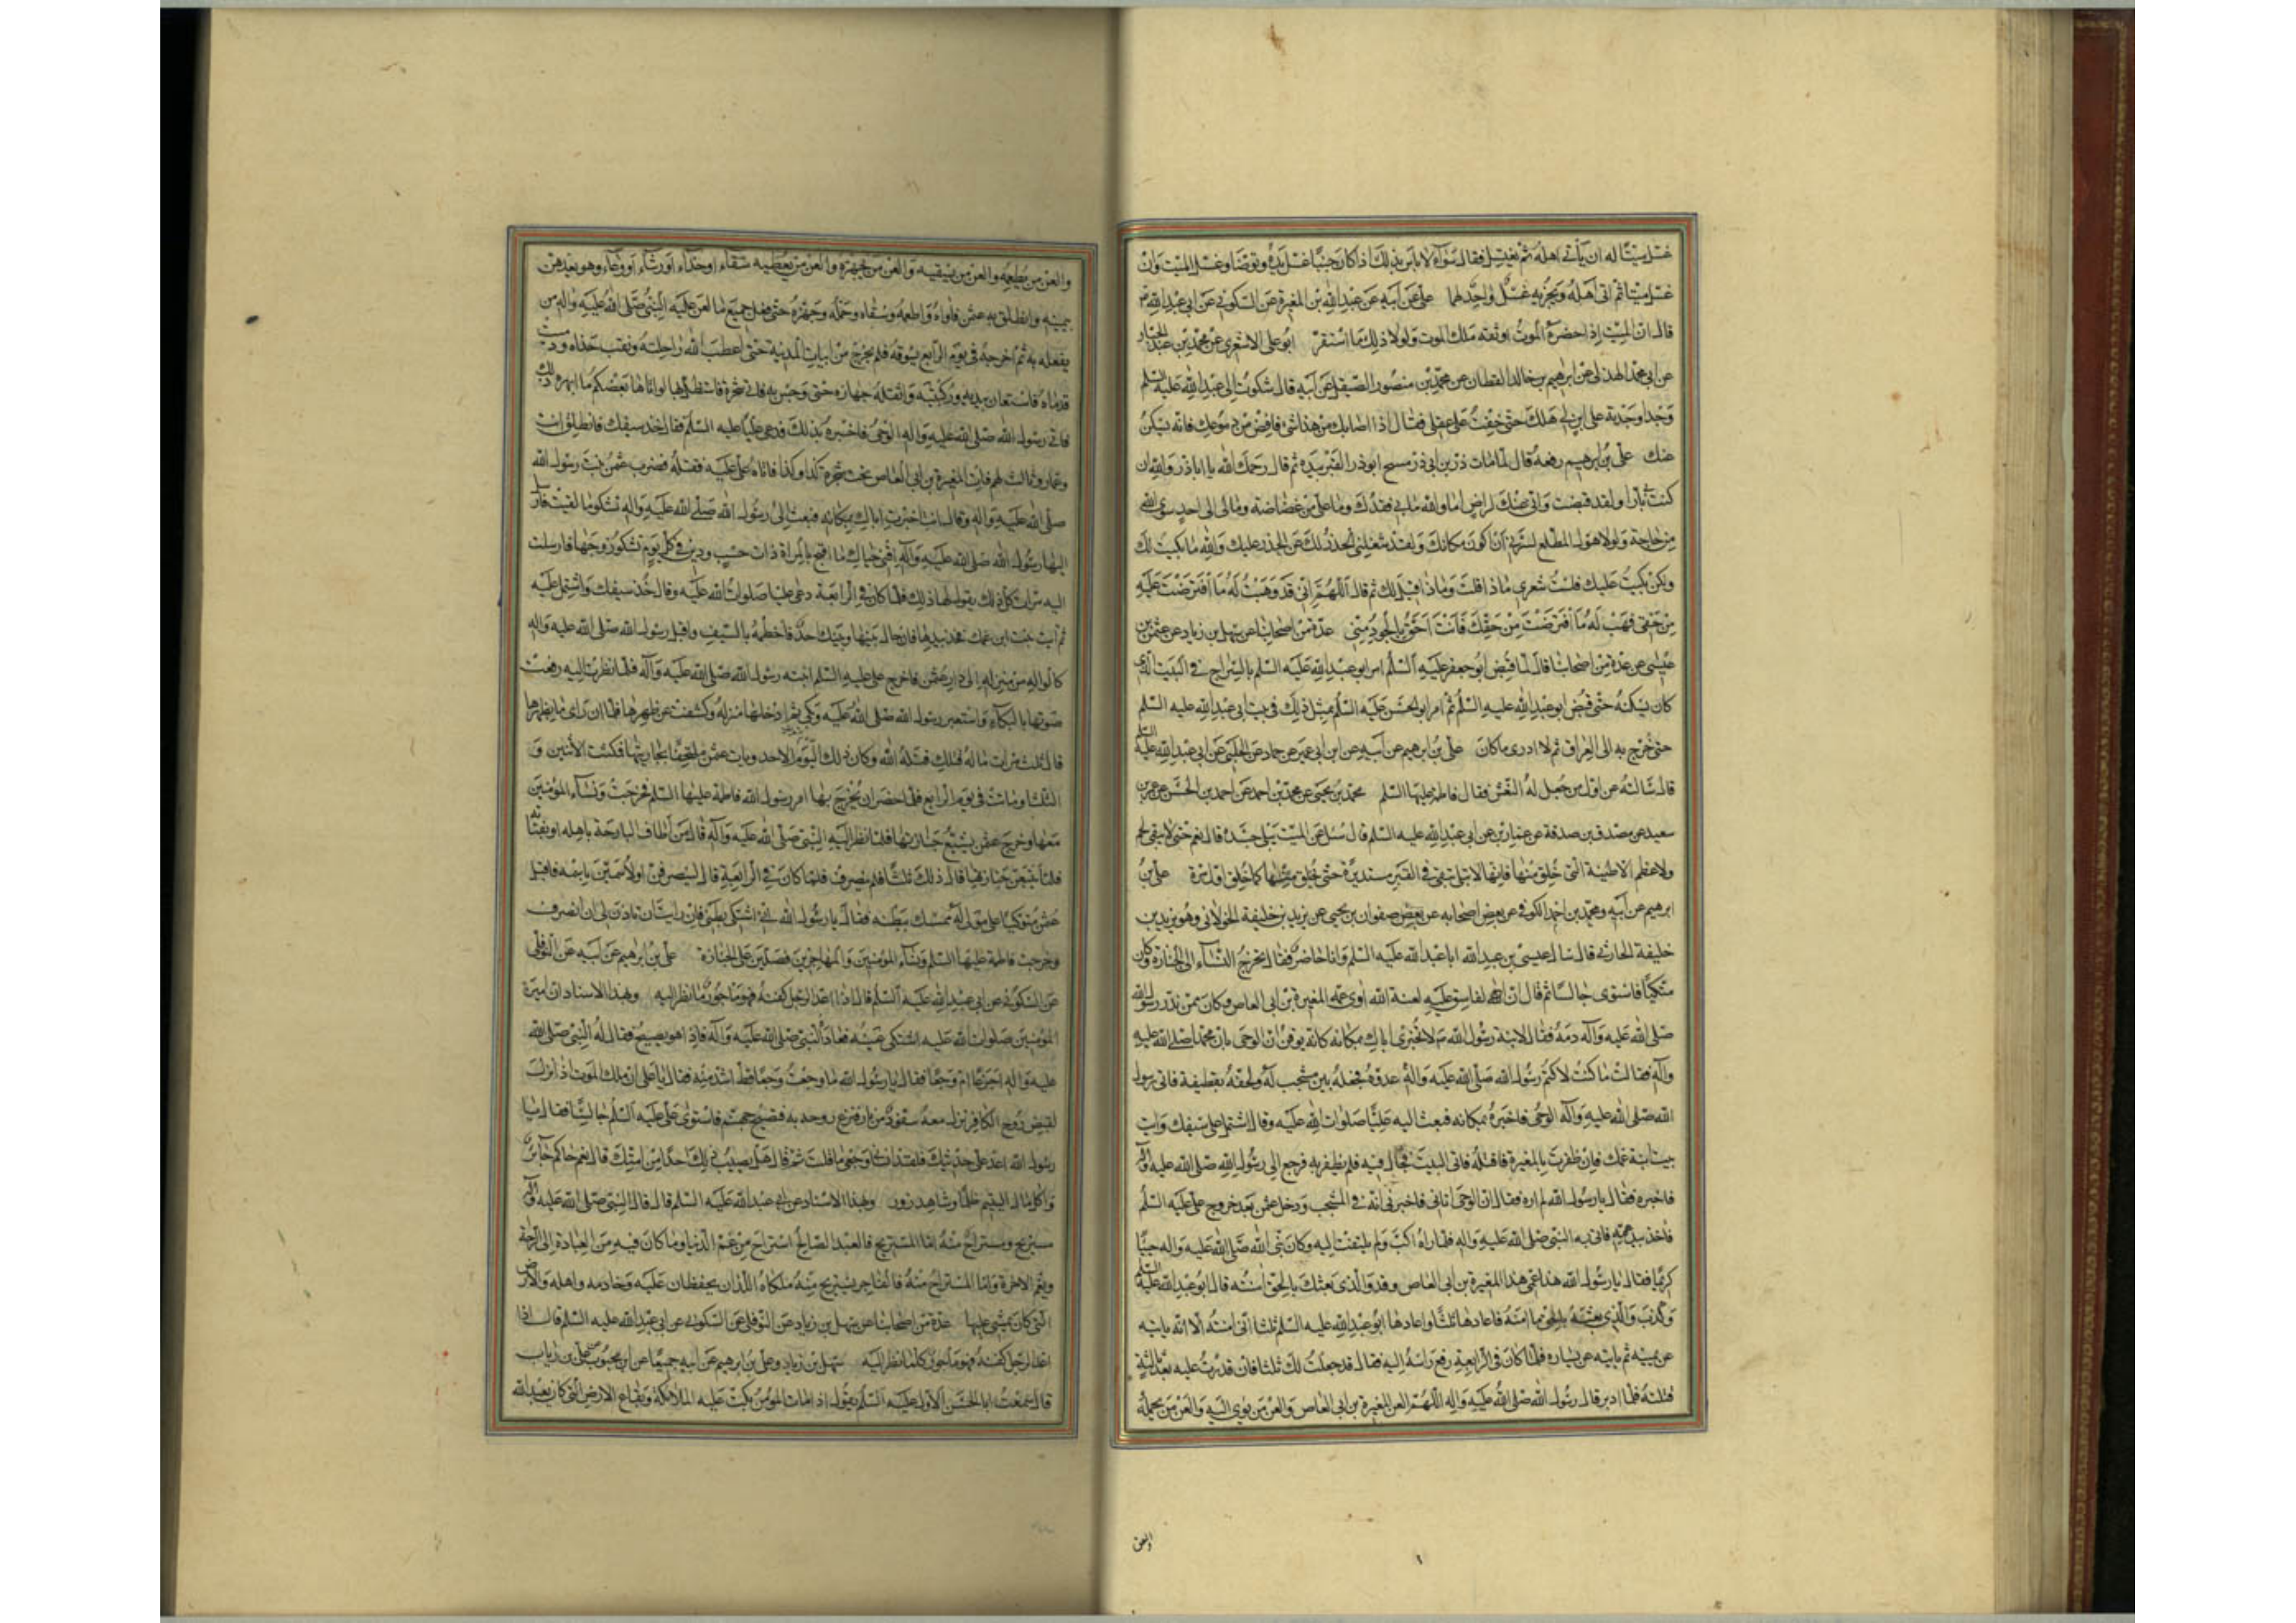 غسل ميتا له ان ياتى اهله ثم يغتسل فقال سواء لا باس بذلك اذا كان جنبا غسل يده وتوضا وغسل الميت وان
غسل ميتا ثم اتى اهله ويجزيه غسل واحد لهما على عن ابيه عن عبد الله بن المغيرة عن السكونى عن ابى عبد الله
قال ان الميت اذا حضره الموت اوثقه ملك الموت ولولا ذلك ما استقر ابو على الاشعرى عن محمد بن عبد الجبار
عن ابى محمد الهذلى عن ابرهيم بن خالد القطان عن محمد بن منصور الصيقل عن ابيه قال شكوت الى ابى عبد الله عليه السلم
وجدا وجدته على ابن لى هلك حتى خفت على عقلى فقال اذا اصابك من هذا شى فافض من دموعك فانه يسكن
عنك على بن ابرهيم رفعه قال لما مات ذر بن ابى ذر مسح ابو ذر القبر بيده ثم قال رحمك الله يا ذر والله ان
كنت بارا ولقد قبضت وانى عنك لراض اما والله ما بى فقدك وما على من غضاضة ومالى الى احد سوى الله
من حاجة ولولا هول المطلع لسرنى ان اكون مكانك ولقد شغلنى الحذر لك عن الحذر عليك والله ما بكيت لك
ولكن بكيت عليك فليت شعرى ماذا قلت وماذا قيل لك ثم قال اللهم انى قد وهبت له ما افترضت عليه
من حقى فهب له ما افترضت من حقك فانت احق بالجود منى عدة من اصحابنا عن سهل بن زياد عن عثمن بن
عيسى عن عدة من اصحابنا قال لما قبض ابو جعفر عليه السلم امر ابو عبد الله عليه السلم بالسراج فى البيت الذى
كان يسكنه حتى قبض ابو عبد الله عليه السلم ثم امر ابو الحسن عليه السلم بمثل ذلك فى بيت ابى عبد الله عليه السلم
حتى خرج به الى العراق ثم لا ادرى ما كان على بن ابرهيم عن ابيه عن ابن ابى عمير عن حماد عن الحلبى عن ابى عبد الله عليه السلم
قال سالته عن اول من جعل له النعش فقال فاطمة عليها السلم محمد بن يحيى عن محمد بن احمد عن احمد بن الحسن عن عمرو بن
سعيد عن مصدق بن صدقة عن عمار بن عن ابى عبد الله عليه السلم قال سئل عن الميت يبلى جسده قال نعم حتى لا يبقى لحم
ولا عظم الا طينته التى خلق منها فانها لا تبلى تبقى فى القبر مستديرة حتى يخلق منها كما خلق اول مرة على بن
ابرهيم عن ابيه ومحمد بن احمد الكوفى عن بعض اصحابه عن صفوان بن يحيى عن يزيد بن خليفة الخولانى وهو يزيد بن
خليفة الحارثى قال سال عيسى بن عبد الله ابا عبد الله عليه السلم وانا حاضر فقال تخرج النساء الى الجنازة وكان
متكيا فاستوى جالسا ثم قال ان الفاسق عليه لعنة الله اوى عمه المغيرة بن ابى العاص وكان ممن نذر رسول الله
صلى الله عليه واله دمه فقال لابنة رسول الله لا تخبرى اباك بمكانه كانه لا يوقن ان الوحى ياتى محمدا صلى الله عليه
واله فقالت ما كنت لاكتم رسول الله صلى الله عليه واله عدوه فجعله بين مشجب له ولحفه بقطيفة فاتى رسول
الله صلى الله عليه واله الوحى فاخبره بمكانه فبعث اليه عليا صلوات الله عليه وقال اشتمل على سيفك وايت
بيت ابنة عمك فان ظفرت بالمغيرة فاقتله فاتى البيت فجال فيه فلم يظفر به فرجع الى رسول الله صلى الله عليه واله
فاخبره فقال يا رسول الله لم اره فقال ان الوحى اتانى فاخبرنى انه فى المشجب ودخل عثمن بعد خروج على عليه السلم
فاخذ بيد عمه فاتى به النبى صلى الله عليه واله فلما راه اكب ولم يلتفت اليه وكان نبى الله صلى الله عليه واله حييا
كريما فقال يا رسول الله هذا عمى هذا المغيرة بن ابى العاص وفد والذى بعثك بالحق امنته قال ابو عبد الله عليه السلم
وكذب والذى بعثه بالحق ما امنه فاعادها ثلثا واعادها ابو عبد الله عليه السلم ثلثا انى امنته الا انه ياتيه
عن يمينه ثم ياتيه عن يساره فلما كان فى الرابعة رفع راسه اليه فقال قد جعلت لك ثلثا فان قدرت عليه بعد ثالثة
قتلته فلما ادبر قال رسول الله صلى الله عليه واله اللهم العن المغيرة بن ابى العاص والعن من يؤويه والعن من يحمله
والعن
والعن من يطعمه والعن من يسقيه والعن من يجهزه والعن من يعطيه سقاء او حذاء او رشاء او وعاء وهو يعدهن
بيمينه وانطلق به عثمن فاواه واطعمه وسقاه وحمله وجهزه حتى فعل جميع ما لعن عليه النبى صلى الله عليه واله من
يفعله به ثم اخرجه فى يوم الرابع يسوقه فلم يخرج من ابيات المدينة حتى اعطب الله راحلته ونقب حذاه ودميت
قدماه فاستعان بيديه وركبتيه واثقله جهازه حتى وجس به فاتى شجرة فاستظل بها لو اتاها بعضكم ما ابهره ذلك
فاتى رسول الله صلى الله عليه واله الوحى فاخبره بذلك فدعى عليا عليه السلم فقال خذ سيفك فانطلق انت
وعمار وثالث لهم فات المغيرة بن ابى العاص تحت شجرة كذا وكذا فاتاه على عليه فقتله فضرب عثمن بنت رسول الله
صلى الله عليه واله وقال انت اخبرت اباك بمكانه فبعثت الى رسول الله صلى الله عليه واله تشكو ما لقيت فارسل
اليها رسول الله صلى الله عليه واله اقنى حياك ما اقبح بالمراة ذات حسب ودين فى كل يوم تشكو زوجها فارسلت
اليه مرات كل ذلك يقول لها ذلك فلما كان فى الرابعة دعى عليا صلوات الله عليه وقال خذ سيفك واشتمل عليه
ثم ايت بنت ابن عمك فخذ بيدها فان حال بينها وبينك احد فاحطمه بالسيف واقبل رسول الله صلى الله عليه واله
كالواله من منزله الى دار عثمن فاخرج على عليه السلم ابنة رسول الله صلى الله عليه واله فلما نظرت اليه رفعت
صوتها بالبكاء واستعبر رسول الله صلى الله عليه وبكى ثم ادخلها منزله وكشفت عن ظهرها فلما ان راى ما بظهرها
قال ثلث مرات ماله قتلك قتله الله وكان ذلك اليوم الاحد وبات عثمن ملتحفا بجاريتها فمكثت الاثنين و
الثلثا وماتت فى يوم الرابع فلما حضر ان يخرج بها امر رسول الله فاطمة عليها السلم فخرجت ونساء المؤمنين
معها وخرج عثمن يشيع جنازتها فلما نظر اليه النبى صلى الله عليه واله قال من اطاف البارحة باهله او بفتاته
فلا يتبعن جنازتها قال ذلك ثلثا فلم ينصرف فلما كان فى الرابعة قال لينصرفن او لاسمين باسمه فاقبل
عثمن متوكيا على مولى له ممسك ببطنه فقال يا رسول الله انى اشتكى بطنى فان رايت ان تاذن لى ان انصرف
وخرجت فاطمة عليها السلم ونساء المؤمنين والمهاجرين فصلين على الجنازة على بن ابرهيم عن ابيه عن النوفلى
عن السكونى عن ابى عبد الله عليه السلم قال اذا اعد الرجل كفنه فهو ماجور كلما نظر اليه وبهذا الاسناد ان امير
المؤمنين صلوات الله عليه اشتكى عينه فعاده النبى صلى الله عليه واله فاذا هو يصيح فقال له النبى صلى الله
عليه واله اجزعا ام وجعا فقال يا رسول الله ما وجعت وجعا قط اشد منه فقال يا على ان ملك الموت اذا نزل
لقبض روح الكافر نزل معه سفود من نار فنزع روحه به فتصيح جهنم فاستوى على عليه السلم جالسا فقال يا
رسول الله اعد على حديثك فلقد انسانى وجعى ما قلت ثم قال هل يصيب ذلك احدا من امتك قال نعم حاكم جاير
واكل مال اليتيم ظلما وشاهد زور وبهذا الاسناد عن ابى عبد الله عليه السلم قال قال النبى صلى الله عليه واله
مستريح ومستراح منه اما المستريح فالعبد الصالح استراح من غم الدنيا وما كان فيه من العبادة الى الراحة
ونعيم الاخرة واما المستراح منه فالفاجر يستريح منه ملكاه اللذان يحفظان عليه وخادمه واهله والارض
التى كان يمشى عليها عدة من اصحابنا عن سهل بن زياد عن النوفلى عن السكونى عن ابى عبد الله عليه السلم قال اذا
اعد الرجل كفنه فهو ماجور كلما نظر اليه سهل بن زياد وعلى بن ابرهيم عن ابيه جميعا عن ابن محبوب عن على بن رياب
قال سمعت ابا الحسن الاول عليه السلم يقول اذا مات المؤمن بكت عليه الملائكة وبقاع الارض التى كان يعبد الله